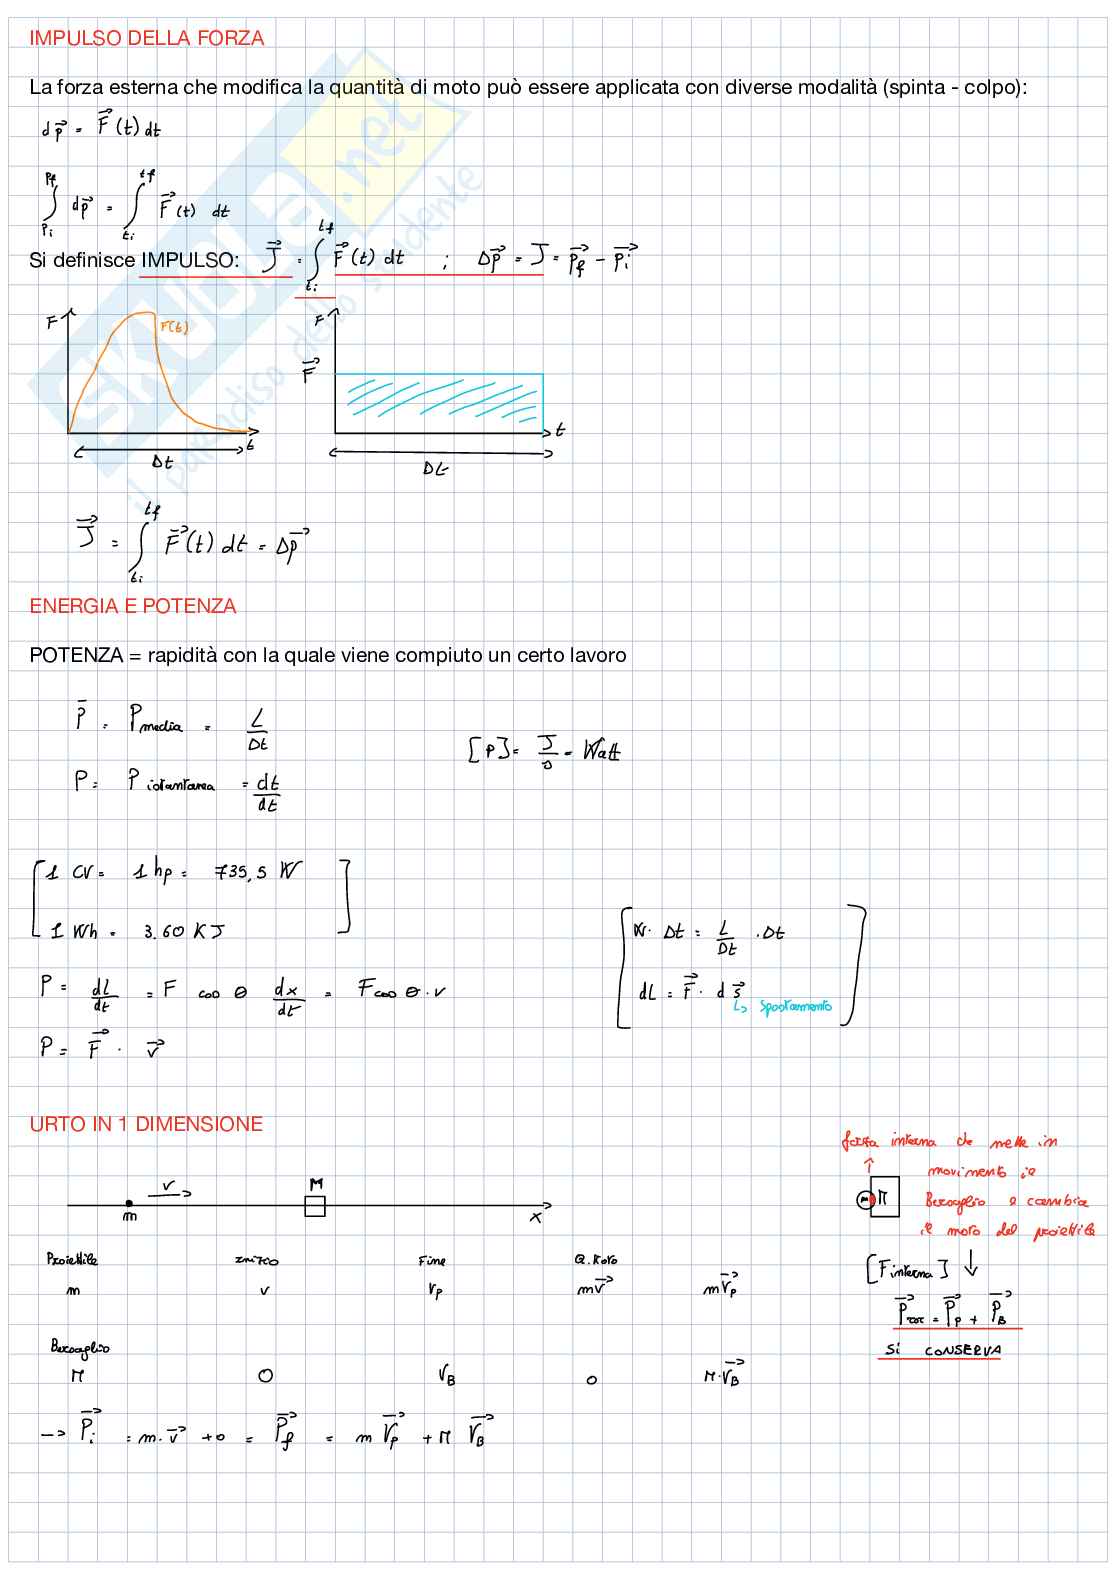 IMPULSO DELLA FORZA
La forza esterna che modifica la quantità di moto può essere applicata con diverse modalità (spinta - colpo):
dp⃗ = F⃗(t) dt
∫_{Pi}^{Pf} dp⃗ = ∫_{ti}^{tf} F⃗(t) dt
Si definisce IMPULSO: J⃗ = ∫_{ti}^{tf} F⃗(t) dt ; Δp⃗ = J = p⃗f - p⃗i
F F(t) t Δt
F F⃗ t Δt
J⃗ = ∫_{ti}^{tf} F⃗(t) dt = Δp⃗
ENERGIA E POTENZA
POTENZA = rapidità con la quale viene compiuto un certo lavoro
P̄ = Pmedia = L/Δt
[P] = J/s = Watt
P = Pistantanea = dt/dt
1 CV = 1 hp = 735,5 W
1 Wh = 3.60 KJ
W · Δt = L/Δt · Δt
P = dL/dt = F cos θ dx/dt = F cos θ · v
dL = F⃗ · d s⃗
↳ Spostamento
P = F⃗ · v⃗
URTO IN 1 DIMENSIONE
v M
m x
forza interna che mette in
movimento il
Bersaglio e cambia
il moto del proiettile
m M
Proiettile Inizio Fine Q. Moto
m v vp mv⃗ mv⃗p
[Finterna] ↓
P⃗TOT = P⃗p + P⃗B
SI CONSERVA
Bersaglio
M 0 vB 0 M·v⃗B
→ P⃗i = m·v⃗ + 0 = P⃗f = m v⃗p + M v⃗B
SKUOLA.net
il paradiso dello studente